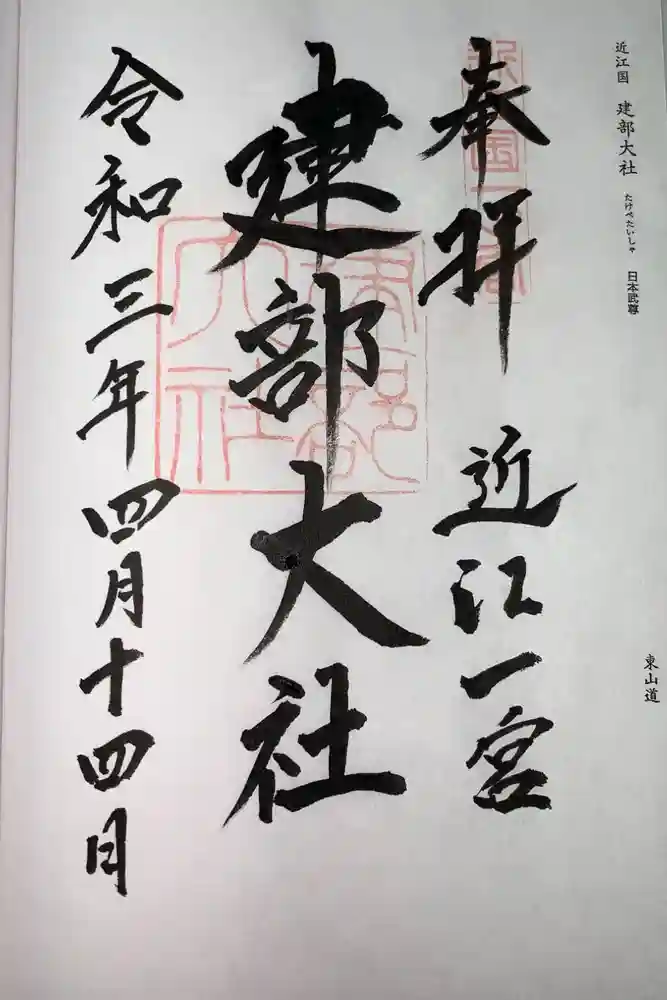 近江国 建部大社 たけべたいしゃ 日本武尊
東山道
奉拝 近江一宮
建部大社
令和三年四月十四日
建部大社